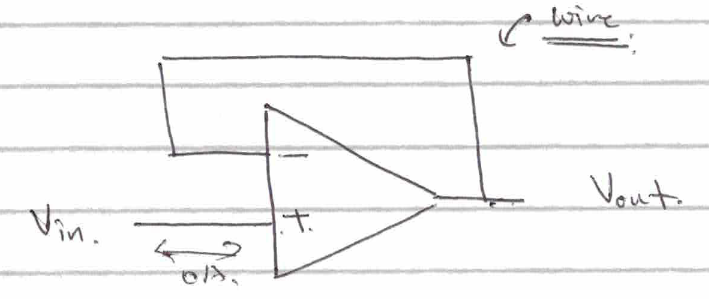 wire
−
Vin.
+.
Vout.
0A.